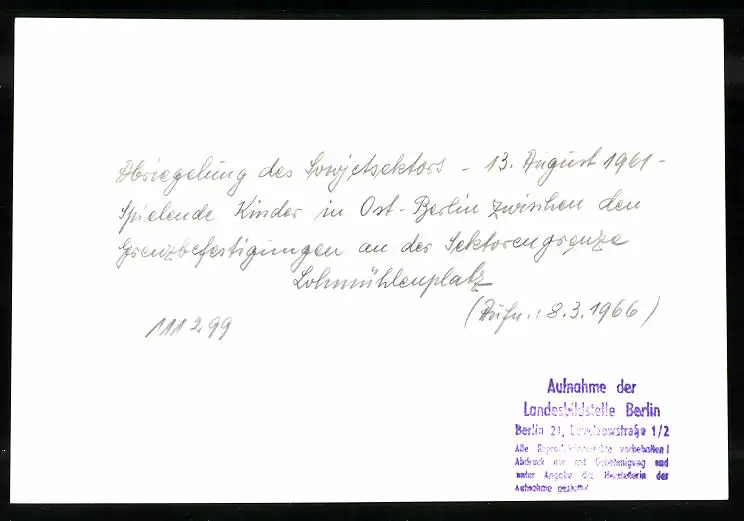 Abriegelung des Sowjetsektors - 13. August 1961 -
Spielende Kinder in Ost-Berlin zwischen den
Grenzbefestigungen an der Sektorengrenze
Lohmühlenplatz
(Aufn.: 8.3.1966)
111 299
Aufnahme der
Landesbildstelle Berlin
Berlin 21, Levetzowstraße 1/2
Alle Reproduktionsrechte vorbehalten!
Abdruck nur mit Genehmigung und
unter Angabe der Herstellerin der
Aufnahme gestattet